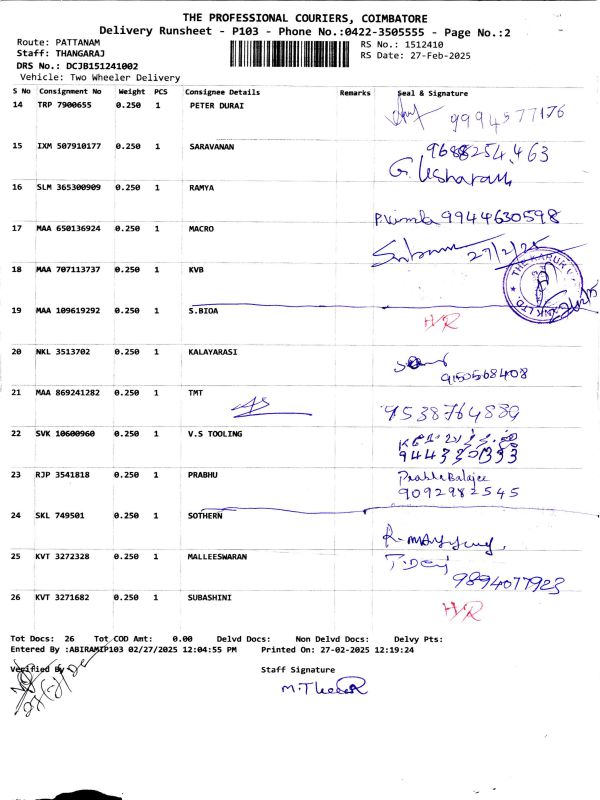 THE PROFESSIONAL COURIERS, COIMBATORE
Delivery Runsheet - P103 - Phone No.:0422-3505555 - Page No.:2
Route: PATTANAM
Staff: THANGARAJ
DRS No.: DCJB151241002
Vehicle: Two Wheeler Delivery
RS No.: 1512410
RS Date: 27-Feb-2025
S No Consignment No Weight PCS Consignee Details Remarks Seal & Signature
14 TRP 7900655 0.250 1 PETER DURAI 9994577176
15 IXM 507910177 0.250 1 SARAVANAN 9688254463
G. Usharani
16 SLM 365300909 0.250 1 RAMYA
P.Vimala 9944630598
17 MAA 650136924 0.250 1 MACRO
27/2/25
18 MAA 707113737 0.250 1 KVB
THE KARUR
19 MAA 109619292 0.250 1 S.BIOA
H/R
20 NKL 3513702 0.250 1 KALAYARASI
9150568408
21 MAA 869241282 0.250 1 TMT
9538764839
22 SVK 10600960 0.250 1 V.S TOOLING
23 RJP 3541818 0.250 1 PRABHU Prabhu Balajee
9092982545
24 SKL 749501 0.250 1 SOTHERN
25 KVT 3272328 0.250 1 MALLEESWARAN
9894077923
26 KVT 3271682 0.250 1 SUBASHINI H/R
Tot Docs: 26 Tot COD Amt: 0.00 Delvd Docs: Non Delvd Docs: Delvy Pts:
Entered By :ABIRAMIP103 02/27/2025 12:04:55 PM Printed On: 27-02-2025 12:19:24
Verified By
Staff Signature